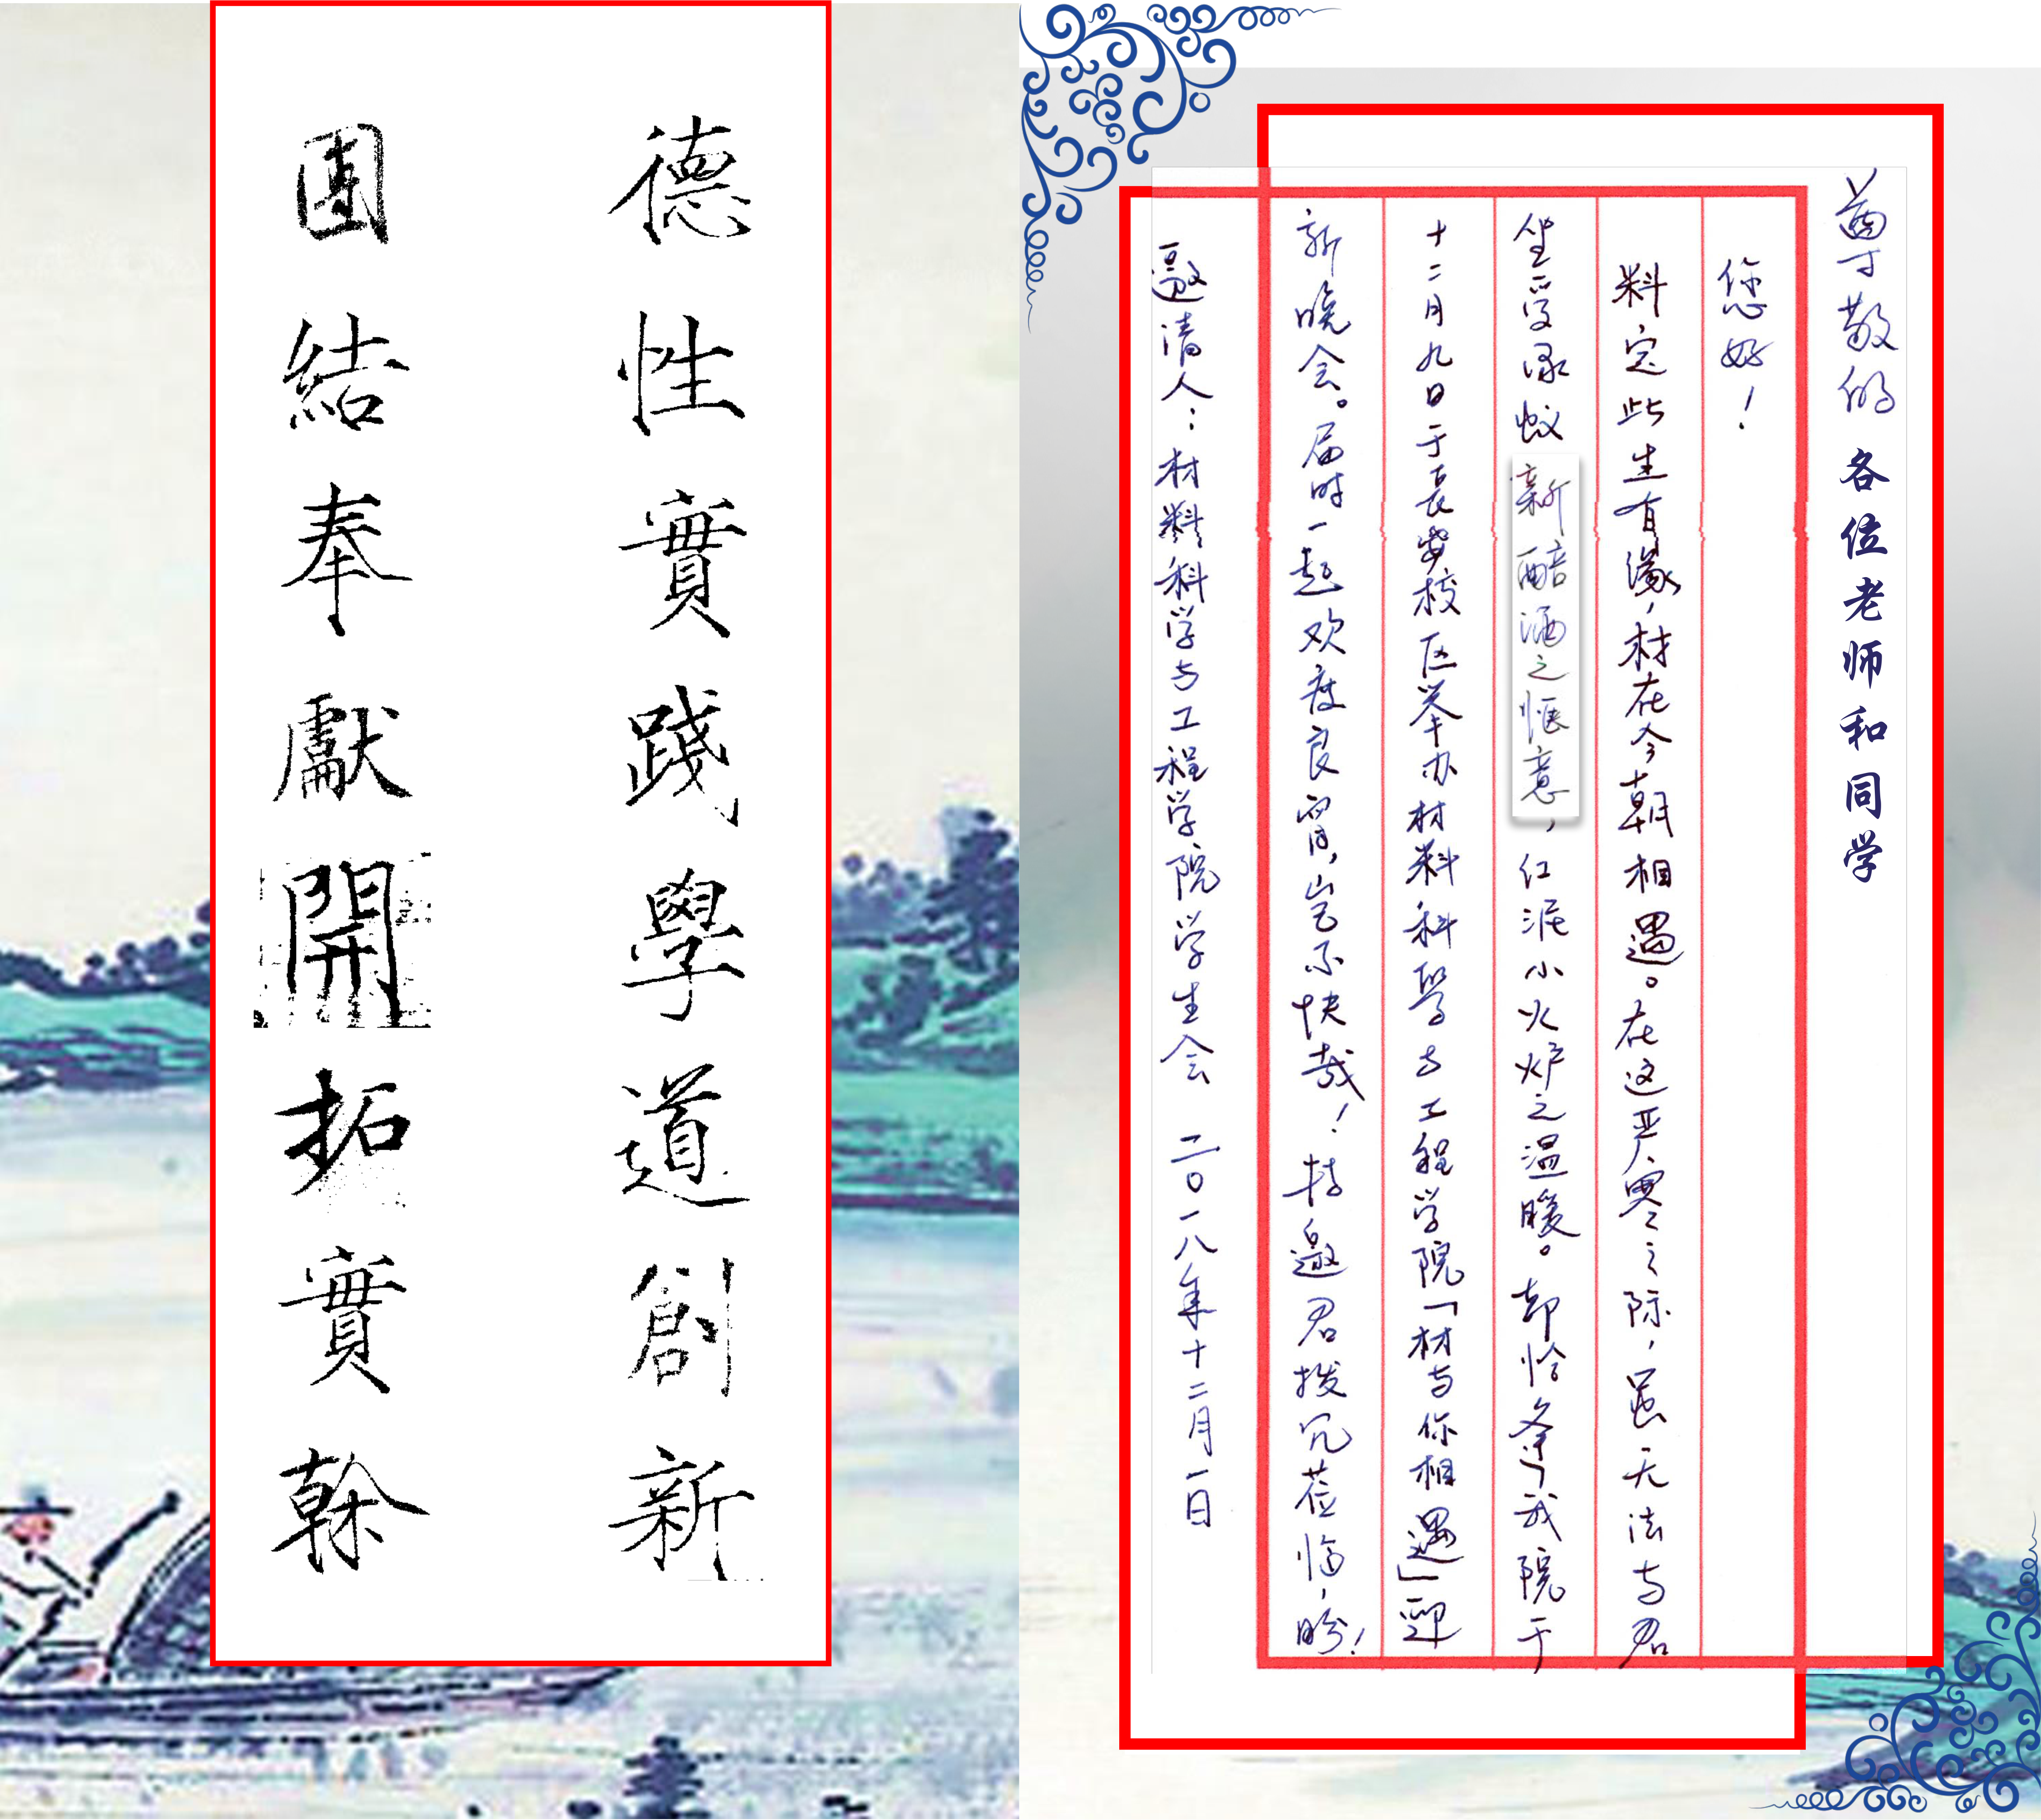 德性實踐學道創新
團結奉獻開拓實幹
尊敬的各位老师和同学
您好！
料定此生有缘，材在今朝相遇。在这严寒之际，虽无法与君
坐受绿蚁新醅酒之惬意，红泥小火炉之温暖。却恰逢我院于
十二月九日于長安校区举办材料科學与工程学院「材与你相遇」迎
新晚会。届时一起欢度良宵，岂不快哉！特邀君拨冗莅临，盼！
邀请人：材料科学与工程学院学生会 二〇一八年十二月一日